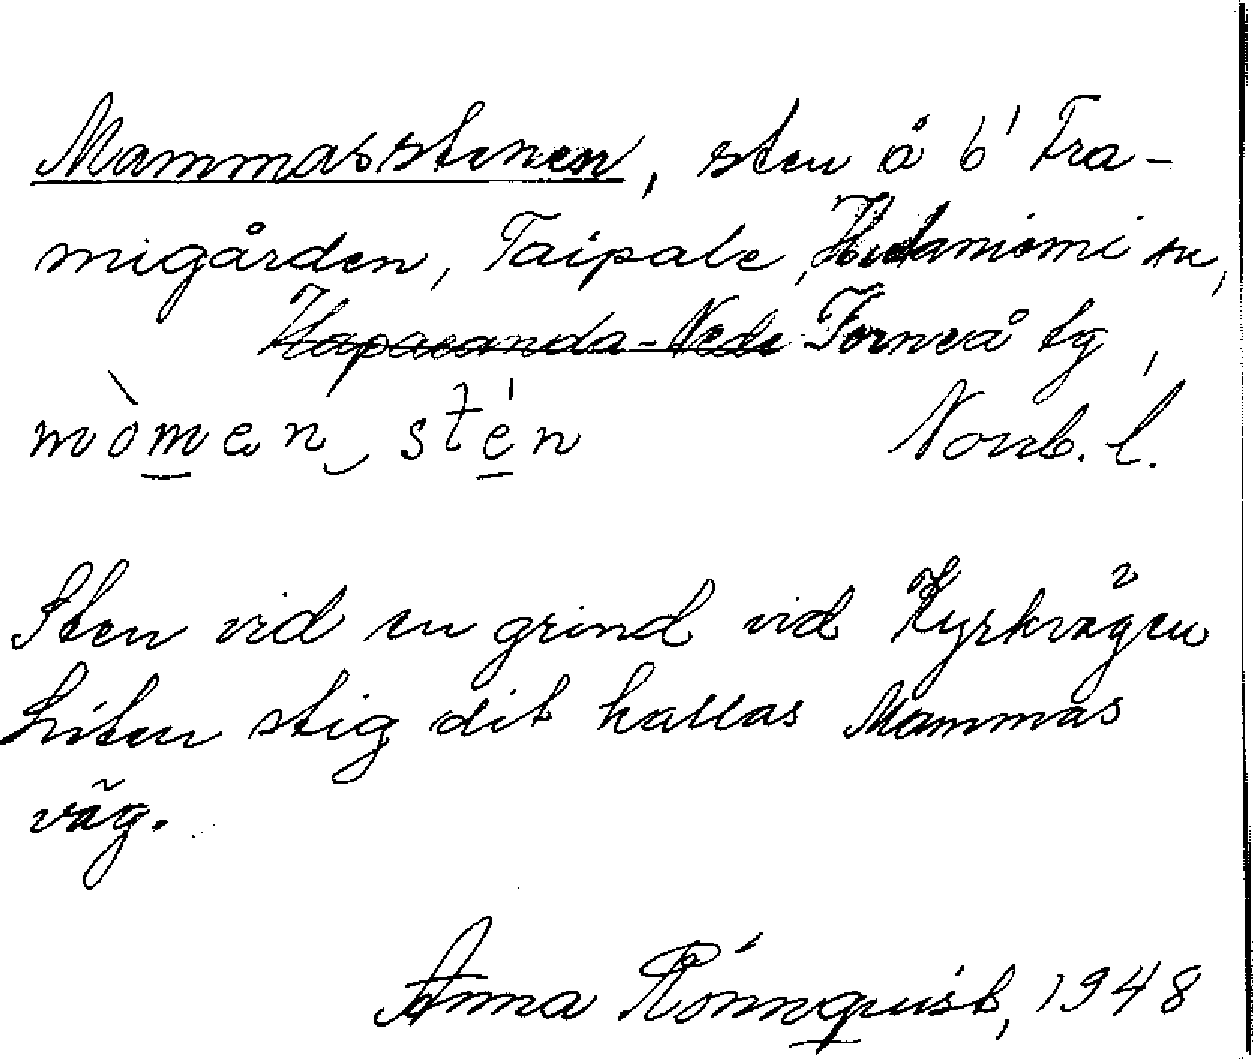 Mammasstenen, sten å b' Fra-
migården, Taipale, Hietaniemi sn,
Haparanda-Neder Torneå tg,
mòmen stén Norrb. l.
Sten vid en grind vid Kyrkvägen
Liten stig dit kallas Mammas
väg.
Anna Rönnquist, 1948